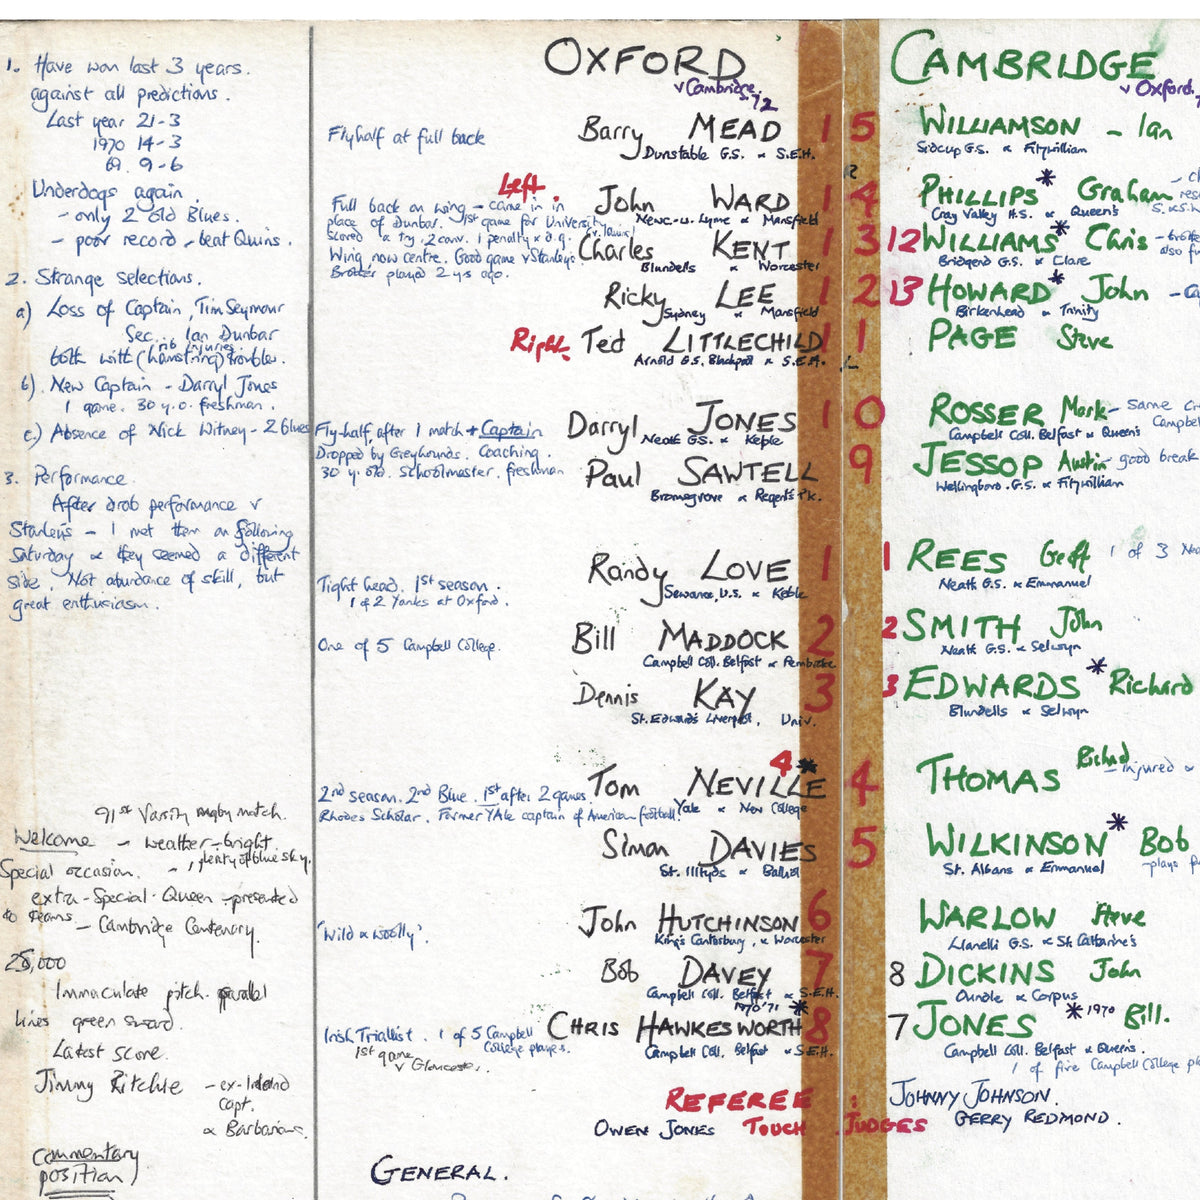 1. Have won last 3 years.
against all predictions.
Last year 21-3
1970 14-3
69. 9-6
Underdogs again
- only 2 old Blues.
- poor record - beat Quins.
2. Strange selections.
a) Loss of Captain, Tim Seymour
Sec. Ian Dunbar
rib injuries
both with (hamstring) trouble.
b) New Captain - Darryl Jones
1 game. 30 y.o. freshman.
c) Absence of Nick Witney - 2 Blues
3. Performance.
After drab performance v
Stanley's - I met them on following
Saturday & they seemed a different
side. Not abundance of skill, but
great enthusiasm.
91st Varsity rugby match.
Welcome - weather - bright.
, plenty of blue sky.
Special occasion. -
extra-Special. Queen - presented
to teams - Cambridge Centenary.
25,000
Immaculate pitch. parallel
lines green sward.
Latest score.
Jimmy Ritchie - ex-Ireland
capt.
& Barbarians.
Commentary
position)
OXFORD
v Cambridge 72
Flyhalf at full back
Barry MEAD 15
Dunstable G.S. & S.E.H.
Left.
Full back on wing - came in in
place of Dunbar. 1st game for University
Scored a try. 2 conv. 1 penalty & d.g.
John WARD 14
Newc-u-Lyme & Mansfield
Wing now centre. Good game v Stanley's
Brother played 2 ys ago.
Charles KENT 13
Blundells & Worcester
Ricky LEE 12
Sydney & Mansfield
Right Ted LITTLECHILD 11
Arnold G.S. Blackpool & S.E.H.
L
Fly-half, after 1 match & Captain
Dropped by Greyhounds. Coaching.
30 y. old. Schoolmaster. freshman
Darryl JONES 10
Neath G.S. & Keble
Paul SAWTELL 9
Bromsgrove & Regent's Pk.
Tight head. 1st season.
1 of 2 Yanks at Oxford.
Randy LOVE 1
Sewanee, U.S. & Keble
One of 5 Campbell College.
Bill MADDOCK 2
Campbell Coll. Belfast & Pembroke
Dennis KAY 3
St. Edward's Liverpool, Univ.
4 *
2nd season. 2nd Blue. 1st after 2 games.
Rhodes Scholar. Former Yale captain of American football.
Tom NEVILLE 4
Yale & New College
Simon DAVIES 5
St. Illtyds & Balliol
'Wild & woolly'.
John HUTCHINSON 6
King's Canterbury, & Worcester
Bob DAVEY 7
Campbell Coll. Belfast & S.E.H.
1970 '71 *
Irish Triallist. 1 of 5 Campbell
College players.
1st game
v Gloucester.
CHRIS HAWKESWORTH 8
Campbell Coll. Belfast & S.E.H.
REFEREE : JOHNNY JOHNSON.
OWEN JONES TOUCH JUDGES GERRY REDMOND.
GENERAL.
CAMBRIDGE
v Oxford
WILLIAMSON - Ian
Sidcup G.S. & Fitzwilliam
R
PHILLIPS * Graham
Cray Valley H.S. & Queen's
12 WILLIAMS * Chris
Bridgend G.S. & Clare
also
13 HOWARD * John
Birkenhead & Trinity
PAGE Steve
ROSSER Mark - same
Campbell Coll. Belfast & Queen's
JESSOP Austin - good break
Wellingboro. G.S. & Fitzwilliam
1 REES Geff 1 of 3
Neath G.S. & Emmanuel
2 SMITH John
Neath G.S. & Selwyn
3 EDWARDS * Richard
Blundells & Selwyn
THOMAS Richard
- injured &
WILKINSON * Bob
St. Albans & Emmanuel
- plays
WARLOW Steve
Llanelli G.S. & St. Catharine's
8 DICKINS John
Oundle & Corpus
7 JONES * 1970 Bill.
Campbell Coll. Belfast & Queen's.
1 of five Campbell College